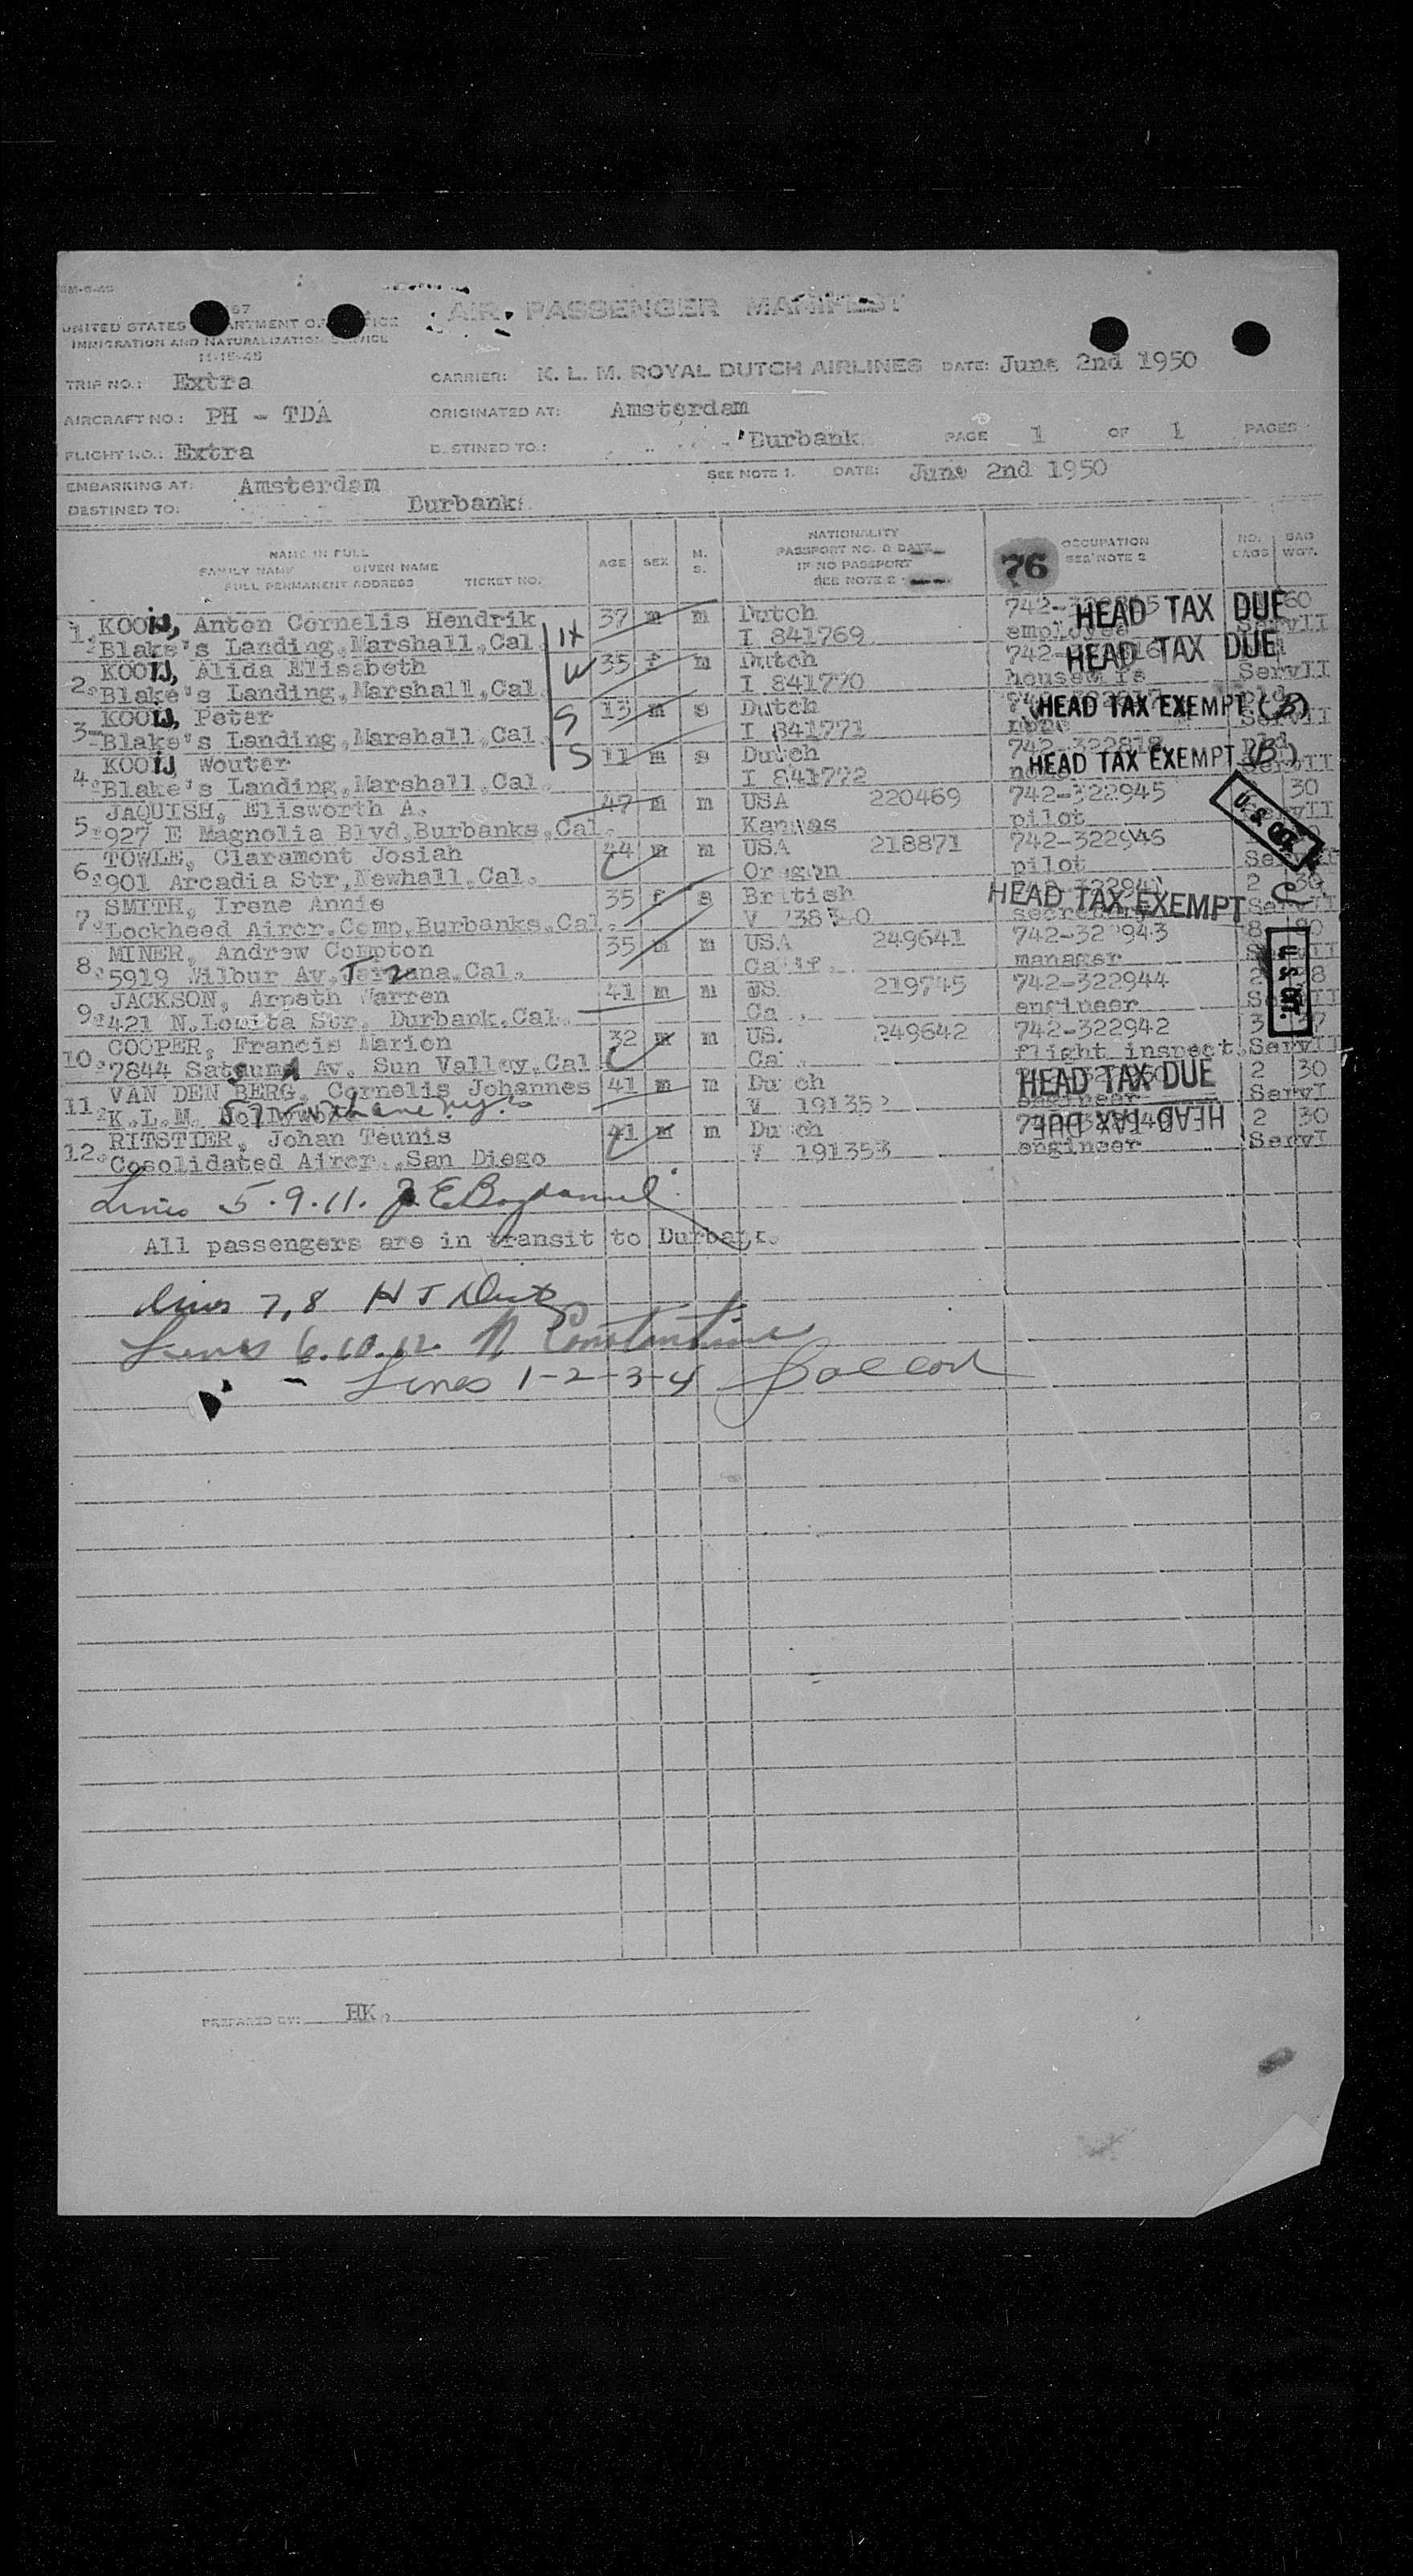 AIR PASSENGER MANIFEST
UNITED STATES DEPARTMENT OF
IMMIGRATION AND NATURALIZATION SERVICE
11-15-45
TRIP NO.: Extra CARRIER: K. L. M. ROYAL DUTCH AIRLINES DATE: June 2nd 1950
AIRCRAFT NO.: PH - TDA ORIGINATED AT: Amsterdam
FLIGHT NO.: Extra DESTINED TO.: Burbank PAGE 1 OF 1 PAGES
EMBARKING AT: Amsterdam SEE NOTE 1. DATE: June 2nd 1950
DESTINED TO: Burbank
NAME IN FULL
FAMILY NAME GIVEN NAME
FULL PERMANENT ADDRESS TICKET NO. AGE SEX M. S. NATIONALITY PASSPORT NO. & DATE IF NO PASSPORT SEE NOTE 2 76 OCCUPATION SEE NOTE 2 NO. BAGS BAG WGT.
1. KOOIJ, Anton Cornelis Hendrik H 37 m m Dutch 742- HEAD TAX DUE 60
Blake's Landing, Marshall, Cal. I 841769 employee ServII
2. KOOIJ, Alida Elisabeth W 35 f m Dutch 742- HEAD TAX DUE
Blake's Landing, Marshall, Cal. I 841770 housewife ServII
3. KOOIJ, Peter S 13 m s Dutch HEAD TAX EXEMPT (B)
Blake's Landing, Marshall, Cal. I 841771 none
4. KOOIJ Wouter S 11 m s Dutch 742-322818 HEAD TAX EXEMPT (B)
Blake's Landing, Marshall, Cal. I 841772 none
5. JAQUISH, Ellsworth A. 47 m m USA 220469 742-322945 30
927 E Magnolia Blvd, Burbanks, Cal. Kansas pilot U. S.
6. TOWLE, Claramont Josiah 44 m m USA 218871 742-322946
901 Arcadia Str, Newhall. Cal. Oregon pilot
7. SMITH, Irene Annie 35 f s British HEAD TAX EXEMPT C 2 30
Lockheed Aircr. Comp, Burbanks, Cal. V secretary
8. MINER, Andrew Compton 35 m m USA 249641 742-322943 8
5919 Wilbur Av. Tarzana. Cal. Calif. manager
9. JACKSON, Arpeth Warren 41 m m US 219745 742-322944 2
421 N. Lomita Str. Burbank. Cal. Ca engineer
10. COOPER, Francis Marion 32 m m US. 249642 742-322942 3 37
7844 Satsuma Av. Sun Valley, Cal Ca. flight inspect. ServII
11. VAN DEN BERG, Cornelis Johannes 41 m m Dutch HEAD TAX DUE 2 30
K. L. M. V 19135 engineer ServI
12. RITSTIER, Johan Teunis 41 m m Dutch HEAD TAX DUE 2 30
Cosolidated Aircr., San Diego V 191353 engineer ServI
Lines 5.9.11.
All passengers are in transit to Burbank.
Lines 7,8 H J
Lines 6.10.12. N Constantine
Lines 1-2-3-4
PREPARED BY: HK.